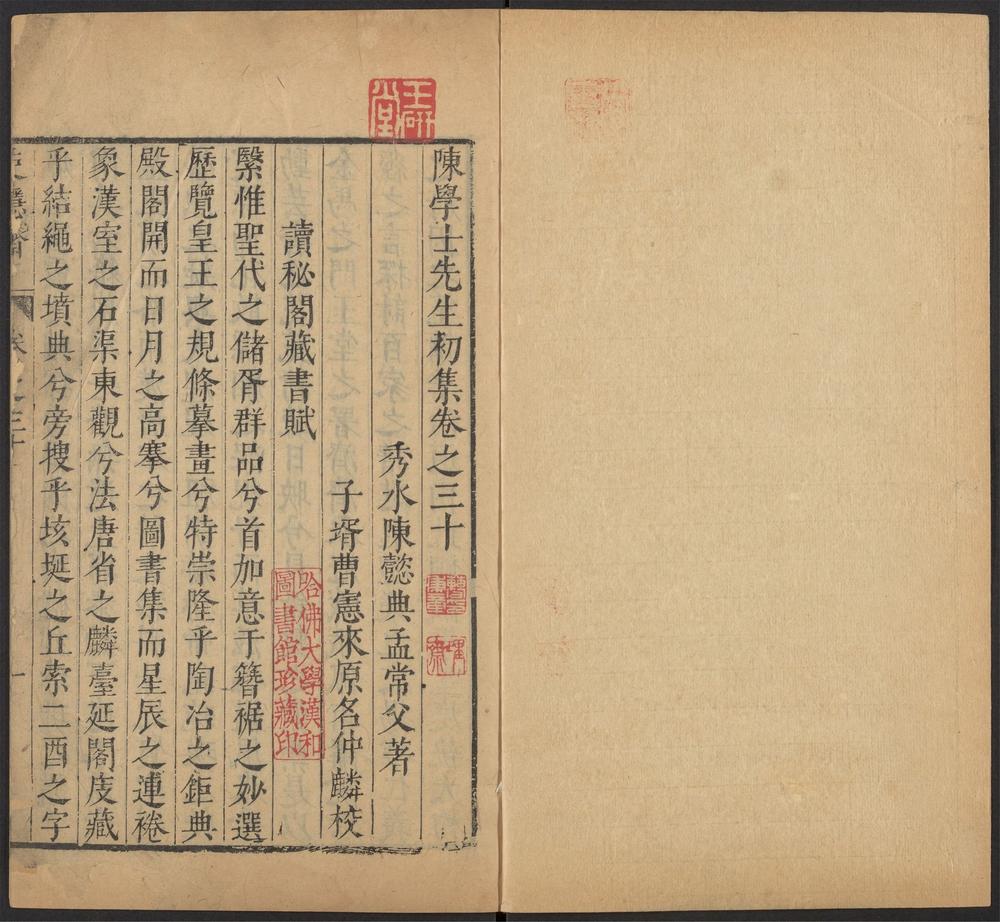 陳學士先生初集卷之三十
秀水陳懿典孟常父著
子壻曹憲來原名仲麟校
讀秘閣藏書賦
繄惟聖代之儲胥群品兮首加意于簪裾之妙選
歷覽皇王之規條摹畫兮特崇隆乎陶冶之鉅典
殿閣開而日月之高搴兮圖書集而星辰之連裷
象漢室之石渠東觀兮法唐省之麟臺延閣庋藏
乎結繩之墳典兮旁搜乎垓埏之丘索二酉之字
卷之三十
一
玉硏堂
哈佛大學漢和
圖書館珍藏印